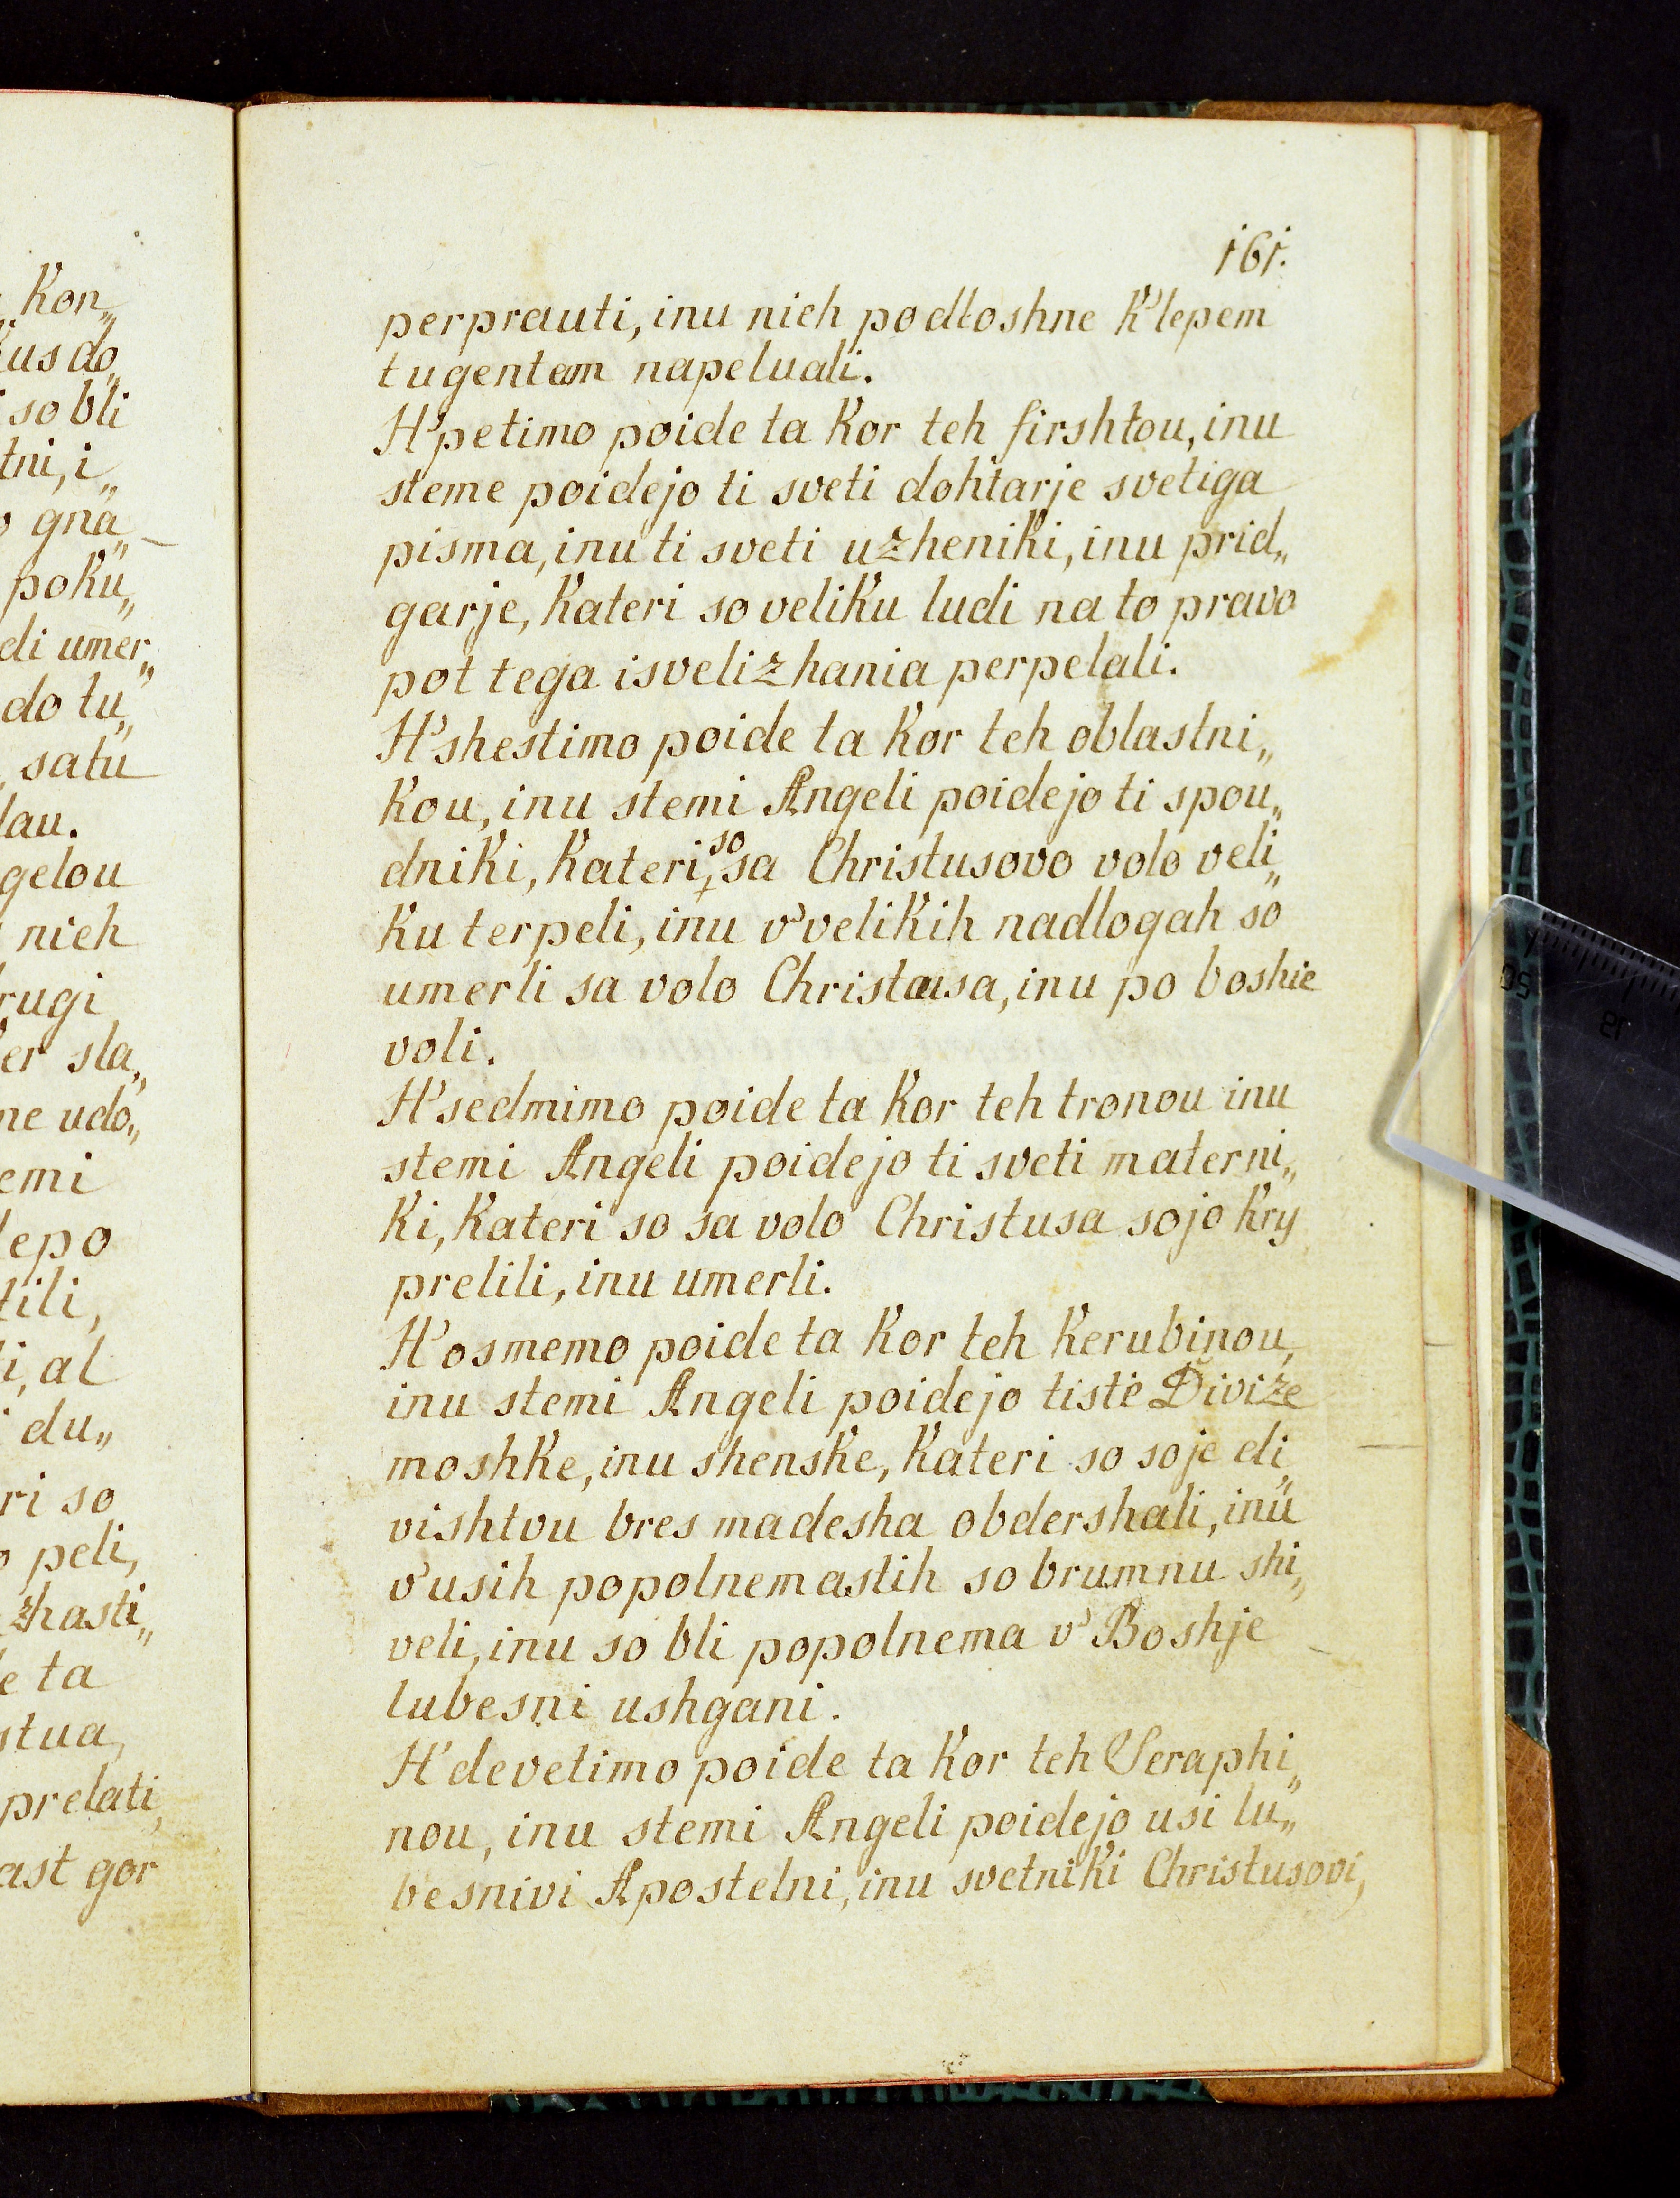 161.
perprauti, inu nich podloshne k'lepem
tugentam napeluali.
H'petimo poide ta kor teh firshtou, inu
steme poidejo ti sveti dohtarje svetiga
pisma, inu ti sveti uzheniki, inu prid„
garje, kateri so veliku ludi na to pravo
pot tega isvelizhania perpelali.
H'shestimo poide ta kor teh oblastni„
kou, inu stemi Angeli poidejo ti spou„
dniki, kateri, so sa Christusovo volo veli„
ku terpeli, inu v'velikih nadlogah so
umerli sa volo Christusa, inu po boshie
voli.
H'sedmimo poide ta kor teh tronou inu
stemi Angeli poidejo ti sveti materni„
ki, kateri so sa volo Christusa sojo kry
prelili, inu umerli.
H'osmemo poide ta kor teh kerubinou,
inu stemi Angeli poidejo tiste Divize
moshke, inu shenske, kateri so soje di„
vishtvu bres madesha obdershali, inu
v'usih popolnemastih so brumnu shi„
veli, inu so bli popolnema v'Boshje
lubesni ushgani.
H'devetimo poide ta kor teh Seraphi„
nou, inu stemi Angeli poidejo usi lu„
besnivi Apostelni, inu svetniki Christusovi,
kon„
us do„
so bli
tni, i„
gna„
poku„
di umer„
do tu„
satu
lau.
gelou
nich
rugi
er sla„
ne udo„
emi
lepo
tili,
i, al
du„
ri so
peli,
zhasti„
e ta
stua,
prelati,
ast gor